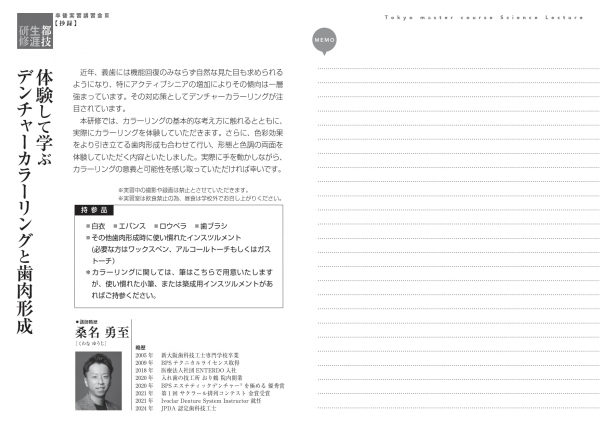 都技
生涯
研修
卒後実習講習会Ⅲ
【抄録】
体験して学ぶ
デンチャーカラーリングと歯肉形成
近年、義歯には機能回復のみならず自然な見た目も求められる
ようになり、特にアクティブシニアの増加によりその傾向は一層
強まっています。その対応策としてデンチャーカラーリングが注
目されています。
本研修では、カラーリングの基本的な考え方に触れるとともに、
実際にカラーリングを体験していただきます。さらに、色彩効果
をより引き立てる歯肉形成も合わせて行い、形態と色調の両面を
体験していただく内容といたしました。実際に手を動かしながら、
カラーリングの意義と可能性を感じ取っていただければ幸いです。
※実習中の撮影や録画は禁止とさせていただきます。
※実習室は飲食禁止の為、昼食は学校外でお召し上がりください。
持参品
＊白衣　＊エバンス　＊ロウベラ　＊歯ブラシ
＊その他歯肉形成時に使い慣れたインスツルメント
(必要な方はワックスペン、アルコールトーチもしくはガス
トーチ)
＊カラーリングに関しては、筆はこちらで用意いたします
が、使い慣れた小筆、または築成用インスツルメントがあ
ればご持参ください。
●講師略歴
桑名 勇至
［くわな ゆうじ］
略歴
2005 年　新大阪歯科技工士専門学校卒業
2009 年　BPS テクニカルライセンス取得
2018 年　医療法人社団 ENTERDO 入社
2020 年　入れ歯の技工所 おり鶴 院内開業
2020 年　BPS エステティックデンチャー® を極める 優秀賞
2021 年　第 1 回 サクラール排列コンテスト 金賞受賞
2021 年　Ivoclar Denture System Instructor 就任
2024 年　JPDA 認定歯科技工士
Tokyo master course Science Lecture
MEMO